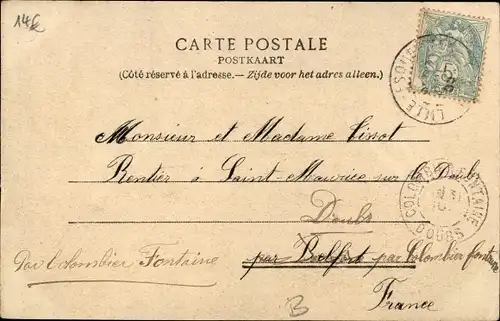 14€
CARTE POSTALE
POSTKAART
(Côté réservé à l'adresse.— Zijde voor het adres alleen.)
LILLE
5
Monsieur et Madame
Rentier à Saint-Maurice sur le Doubs
Doubs
COLOMBIER-FONTAINE
DOUBS
par Belfort par Colombier fontaine
Par Colombier Fontaine
B
France